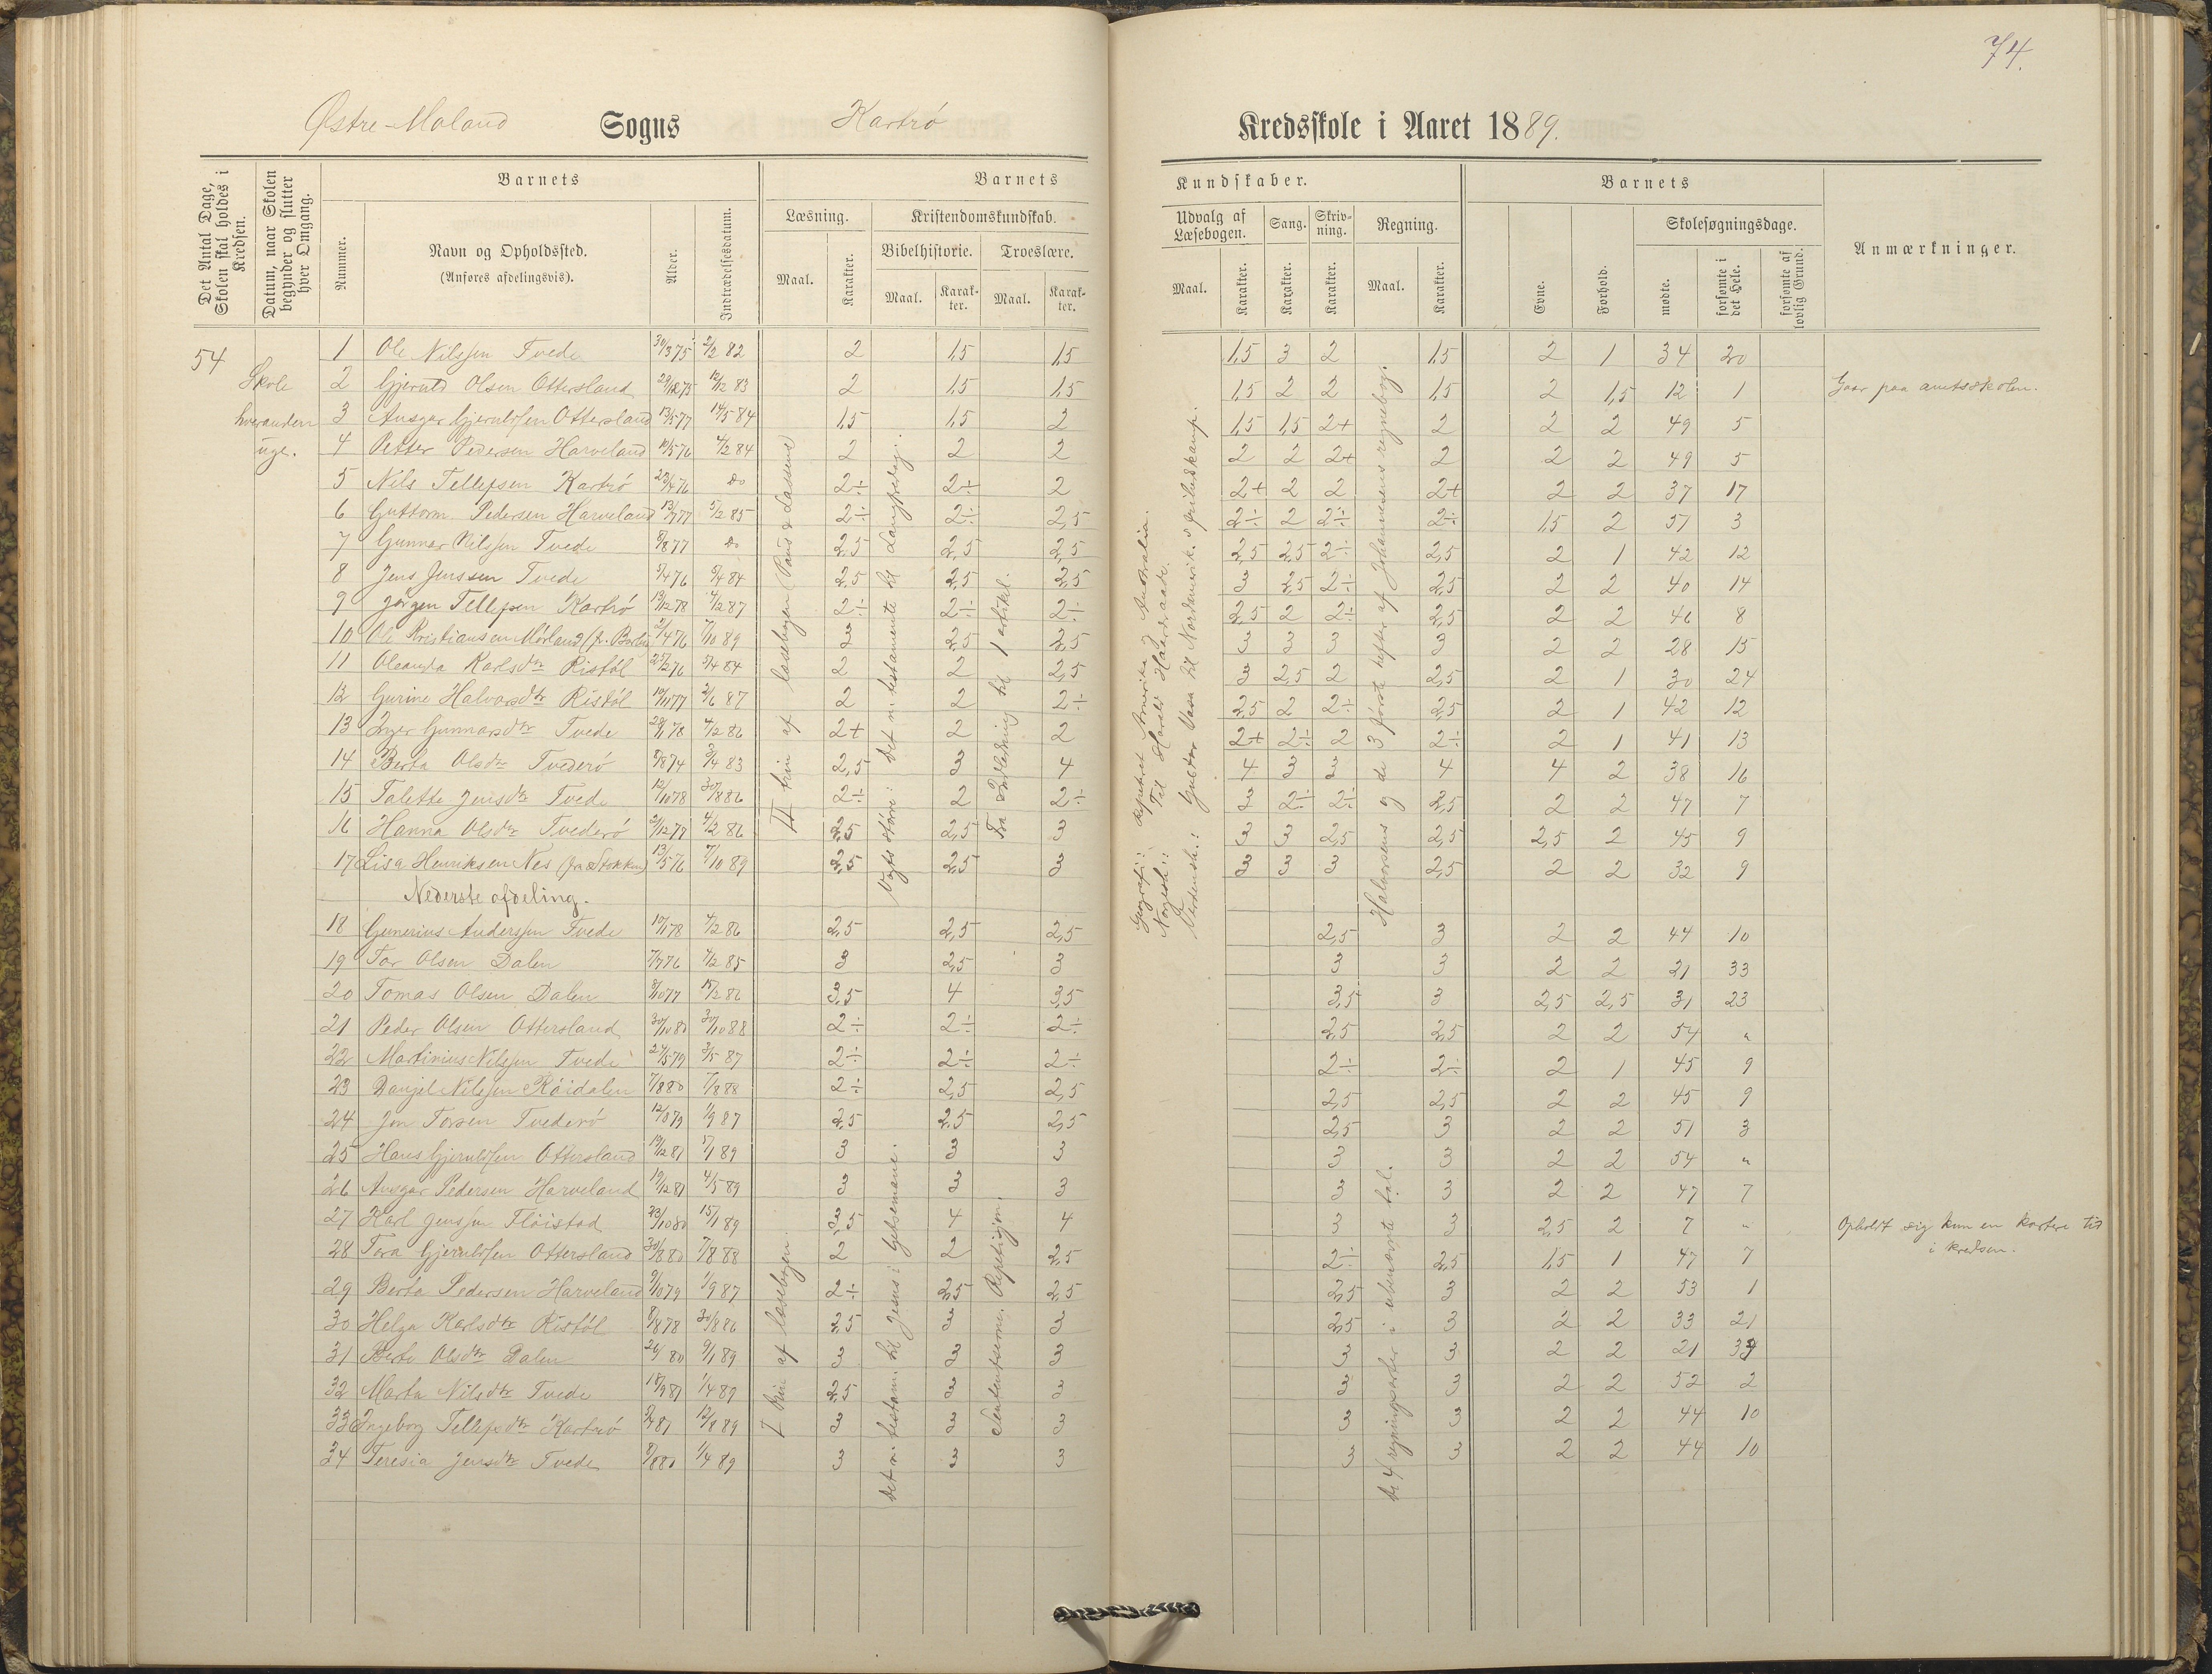 74.
Østre-Moland Sogns Kartrø Kredsskole i Aaret 1889.
Det Antal Dage, Skolen skal holdes i Kredsen.
Datum, naar Skolen begynder og slutter hver Omgang.
Nummer.
Barnets
Navn og Opholdssted.
(Anføres afdelingsvis).
Alder.
Indtrædelsesdatum.
Barnets Kundskaber.
Læsning.
Maal. Karakter.
Kristendomskundskab.
Bibelhistorie. Troeslære.
Maal. Karakter. Maal. Karakter.
Udvalg af Læsebogen.
Maal. Karakter.
Sang. Karakter.
Skrivning. Karakter.
Regning.
Maal. Karakter.
Barnets
Evne. Forhold.
Skolesøgningsdage.
mødte. forsømte i det Hele. forsømte af lovlig Grund.
Anmærkninger.
54
Skole
hveranden
uge.
1 Ole Nilssen Tvede 30/3 75 2/2 82 2 1,5 1,5 1,5 3 2 1,5 2 1 34 20
2 Gjeruld Olsen Ottersland 29/12 75 12/12 83 2 1,5 1,5 1,5 2 2 1,5 2 1,5 12 1 Gaar paa amtsskolen.
3 Ansgar Gjeruldsen Ottersland 13/5 77 14/5 84 1,5 1,5 2 1,5 1,5 2+ 2 2 2 49 5
4 Petter Pedersen Harveland 10/5 76 4/2 84 2 2 2 2 2 2+ 2 2 2 49 5
5 Nils Tellefsen Kartrø 23/4 76 do 2÷ 2÷ 2 2+ 2 2 2+ 2 2 37 17
6 Guttorm Pedersen Harveland 13/7 77 5/2 85 2÷ 2÷ 2,5 2÷ 2 2÷ 2÷ 1,5 2 51 3
7 Gunnar Nilssen Tvede 8/8 77 do 2,5 2,5 2,5 2,5 2,5 2÷ 2,5 2 1 42 12
8 Jens Jenssen Tvede 5/4 76 5/4 84 2,5 2,5 2,5 3 2,5 2÷ 2,5 2 2 40 14
9 Jørgen Tellefsen Kartrø 19/12 78 4/2 87 2÷ 2÷ 2÷ 2,5 2 2÷ 2,5 2 2 46 8
10 Ole Kristiansen Mørland 2/4 76 7/10 89 3 2,5 2,5 3 3 3 3 2 2 28 15
11 Oleanda Karlsdtr Ristøl 25/2 76 5/4 84 2 2 2,5 3 2,5 2 2,5 2 1 30 24
12 Gurine Halvorsdtr Ristøl 10/11 77 2/6 87 2 2 2÷ 2,5 2 2÷ 2,5 2 1 42 12
13 Inger Gunnarsdtr Tvede 28/1 78 4/2 86 2+ 2 2 2+ 2÷ 2 2÷ 2 1 41 13
14 Berta Olsdtr Tvederø 8/8 74 3/4 83 2,5 3 4 4 3 3 4 4 2 38 16
15 Talette Jensdtr Tvede 12/10 78 30/8 86 2÷ 2 2÷ 3 2÷ 2÷ 2,5 2 2 47 7
16 Hanna Olsdtr Tvederø 2/12 77 4/2 86 2,5 2,5 3 3 3 2,5 2,5 2,5 2 45 9
17 Lisa Henriksen Nes (fra Stokken) 13/5 76 7/10 89 2,5 2,5 3 3 3 3 2,5 2 2 32 9
Nederste afdeling.
18 Gunerius Anderssen Tvede 10/1 78 4/2 86 2,5 2,5 2,5 2,5 3 2 2 44 10
19 Tor Olsen Dalen 7/7 76 4/2 85 3 2,5 3 3 3 2 2 21 33
20 Tomas Olsen Dalen 8/10 77 15/2 86 3,5 4 3,5 3,5 3 2,5 2,5 31 23
21 Peder Olsen Ottersland 30/10 80 30/10 88 2÷ 2÷ 2÷ 2,5 2,5 2 2 54 "
22 Martinius Nilssen Tvede 24/5 79 3/5 87 2÷ 2÷ 2÷ 2÷ 2÷ 2 1 45 9
23 Danjel Nilssen Røidalen 7/8 80 7/8 88 2÷ 2,5 2,5 2,5 2,5 2 2 45 9
24 Jon Torsen Tvederø 12/10 79 1/9 87 2,5 2,5 2,5 2,5 3 2 2 51 3
25 Hans Gjeruldsen Ottersland 19/12 81 17/1 89 3 3 3 3 3 2 2 54 "
26 Ansgar Pedersen Harveland 19/12 81 4/5 89 3 3 3 3 3 2 2 47 7
27 Karl Jenssen Fløistad 23/10 80 15/1 89 3,5 4 4 3 3 2,5 2 7 " Opholdt sig kun en kortere tid
i kredsen.
28 Tora Gjeruldsen Ottersland 30/8 80 7/8 88 2 2 2,5 2÷ 2,5 1,5 1 47 7
29 Berta Pedersen Harveland 9/10 79 1/9 87 2÷ 2,5 2,5 2,5 3 2 2 53 1
30 Helga Karlsdtr Ristøl 8/8 78 30/8 86 2,5 3 3 2,5 3 2 2 33 21
31 Berte Olsdtr Dalen 80 9/1 89 3 3 3 3 3 2 2 21 33
32 Marta Nilsdtr Tvede 18/9 81 1/4 89 2,5 3 3 3 3 2 2 52 2
33 Ingeborg Tellefsdtr Kartrø 81 12/8 89 3 3 3 3 3 2 2 44 10
34 Teresia Jensdtr Tvede 8/8 80 1/4 89 3 3 3 3 3 2 2 44 10
II trin af læsebogen (Pauss & Lassens)
Vogts større: Det n. testamente til Langfredag.
Fra Indledning til 1 artikel.
Geografi: Repeteret Amerika og Australia.
Norgesh.: Til Harald Haardraade.
Verdensh.: Gustav Vasa til Nordamerik. frihedskamp.
Halvorsens og de 3 første hefter af Johannesens regnebog.
I trin af læsebogen.
Det n. testam. til Jesus i Getsemane.
Sententserne. Repetisjon.
De 4 regningsarter i ubenævnte tal.